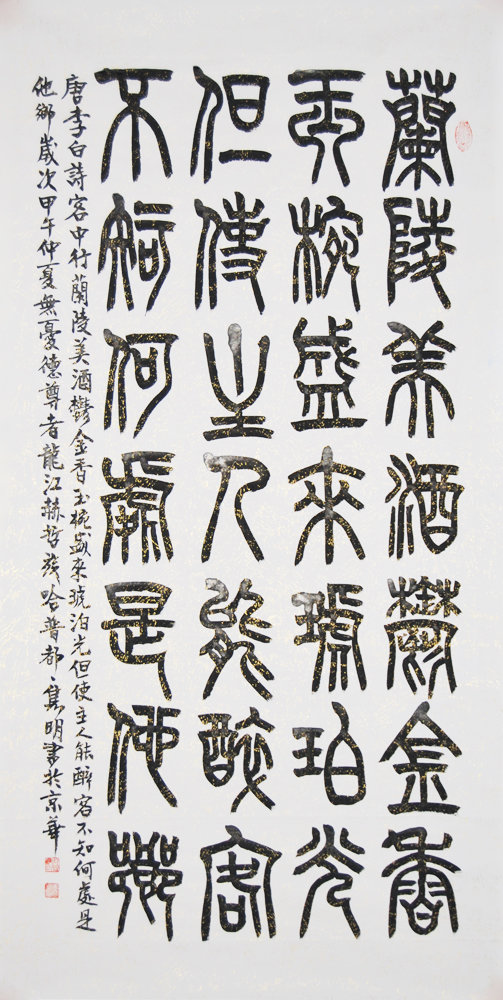 蘭陵美酒鬱金香
玉椀盛來琥珀光
但使主人能醉客
不知何處是他鄉
唐李白詩客中行蘭陵美酒鬱金香玉椀盛來琥珀光但使主人能醉客不知何處是
他鄉歲次甲午仲夏無憂德尊者龍江赫哲族哈普都·隽明書於京華